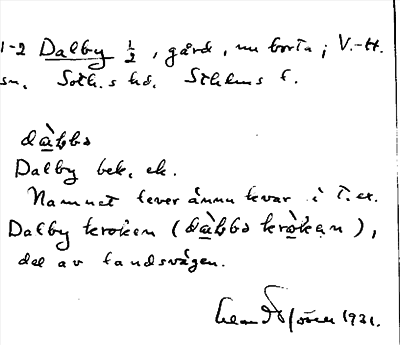 1-2 Dalby ½, gård, nu borta; V.-H.
sn. Soth.s hd. Sthlms l.
dàbbə
Dalby bek. ek.
Namnet lever ännu kvar i t.ex.
Dalby kroken (dàbbə kròkən),
del av landsvägen.
1931.